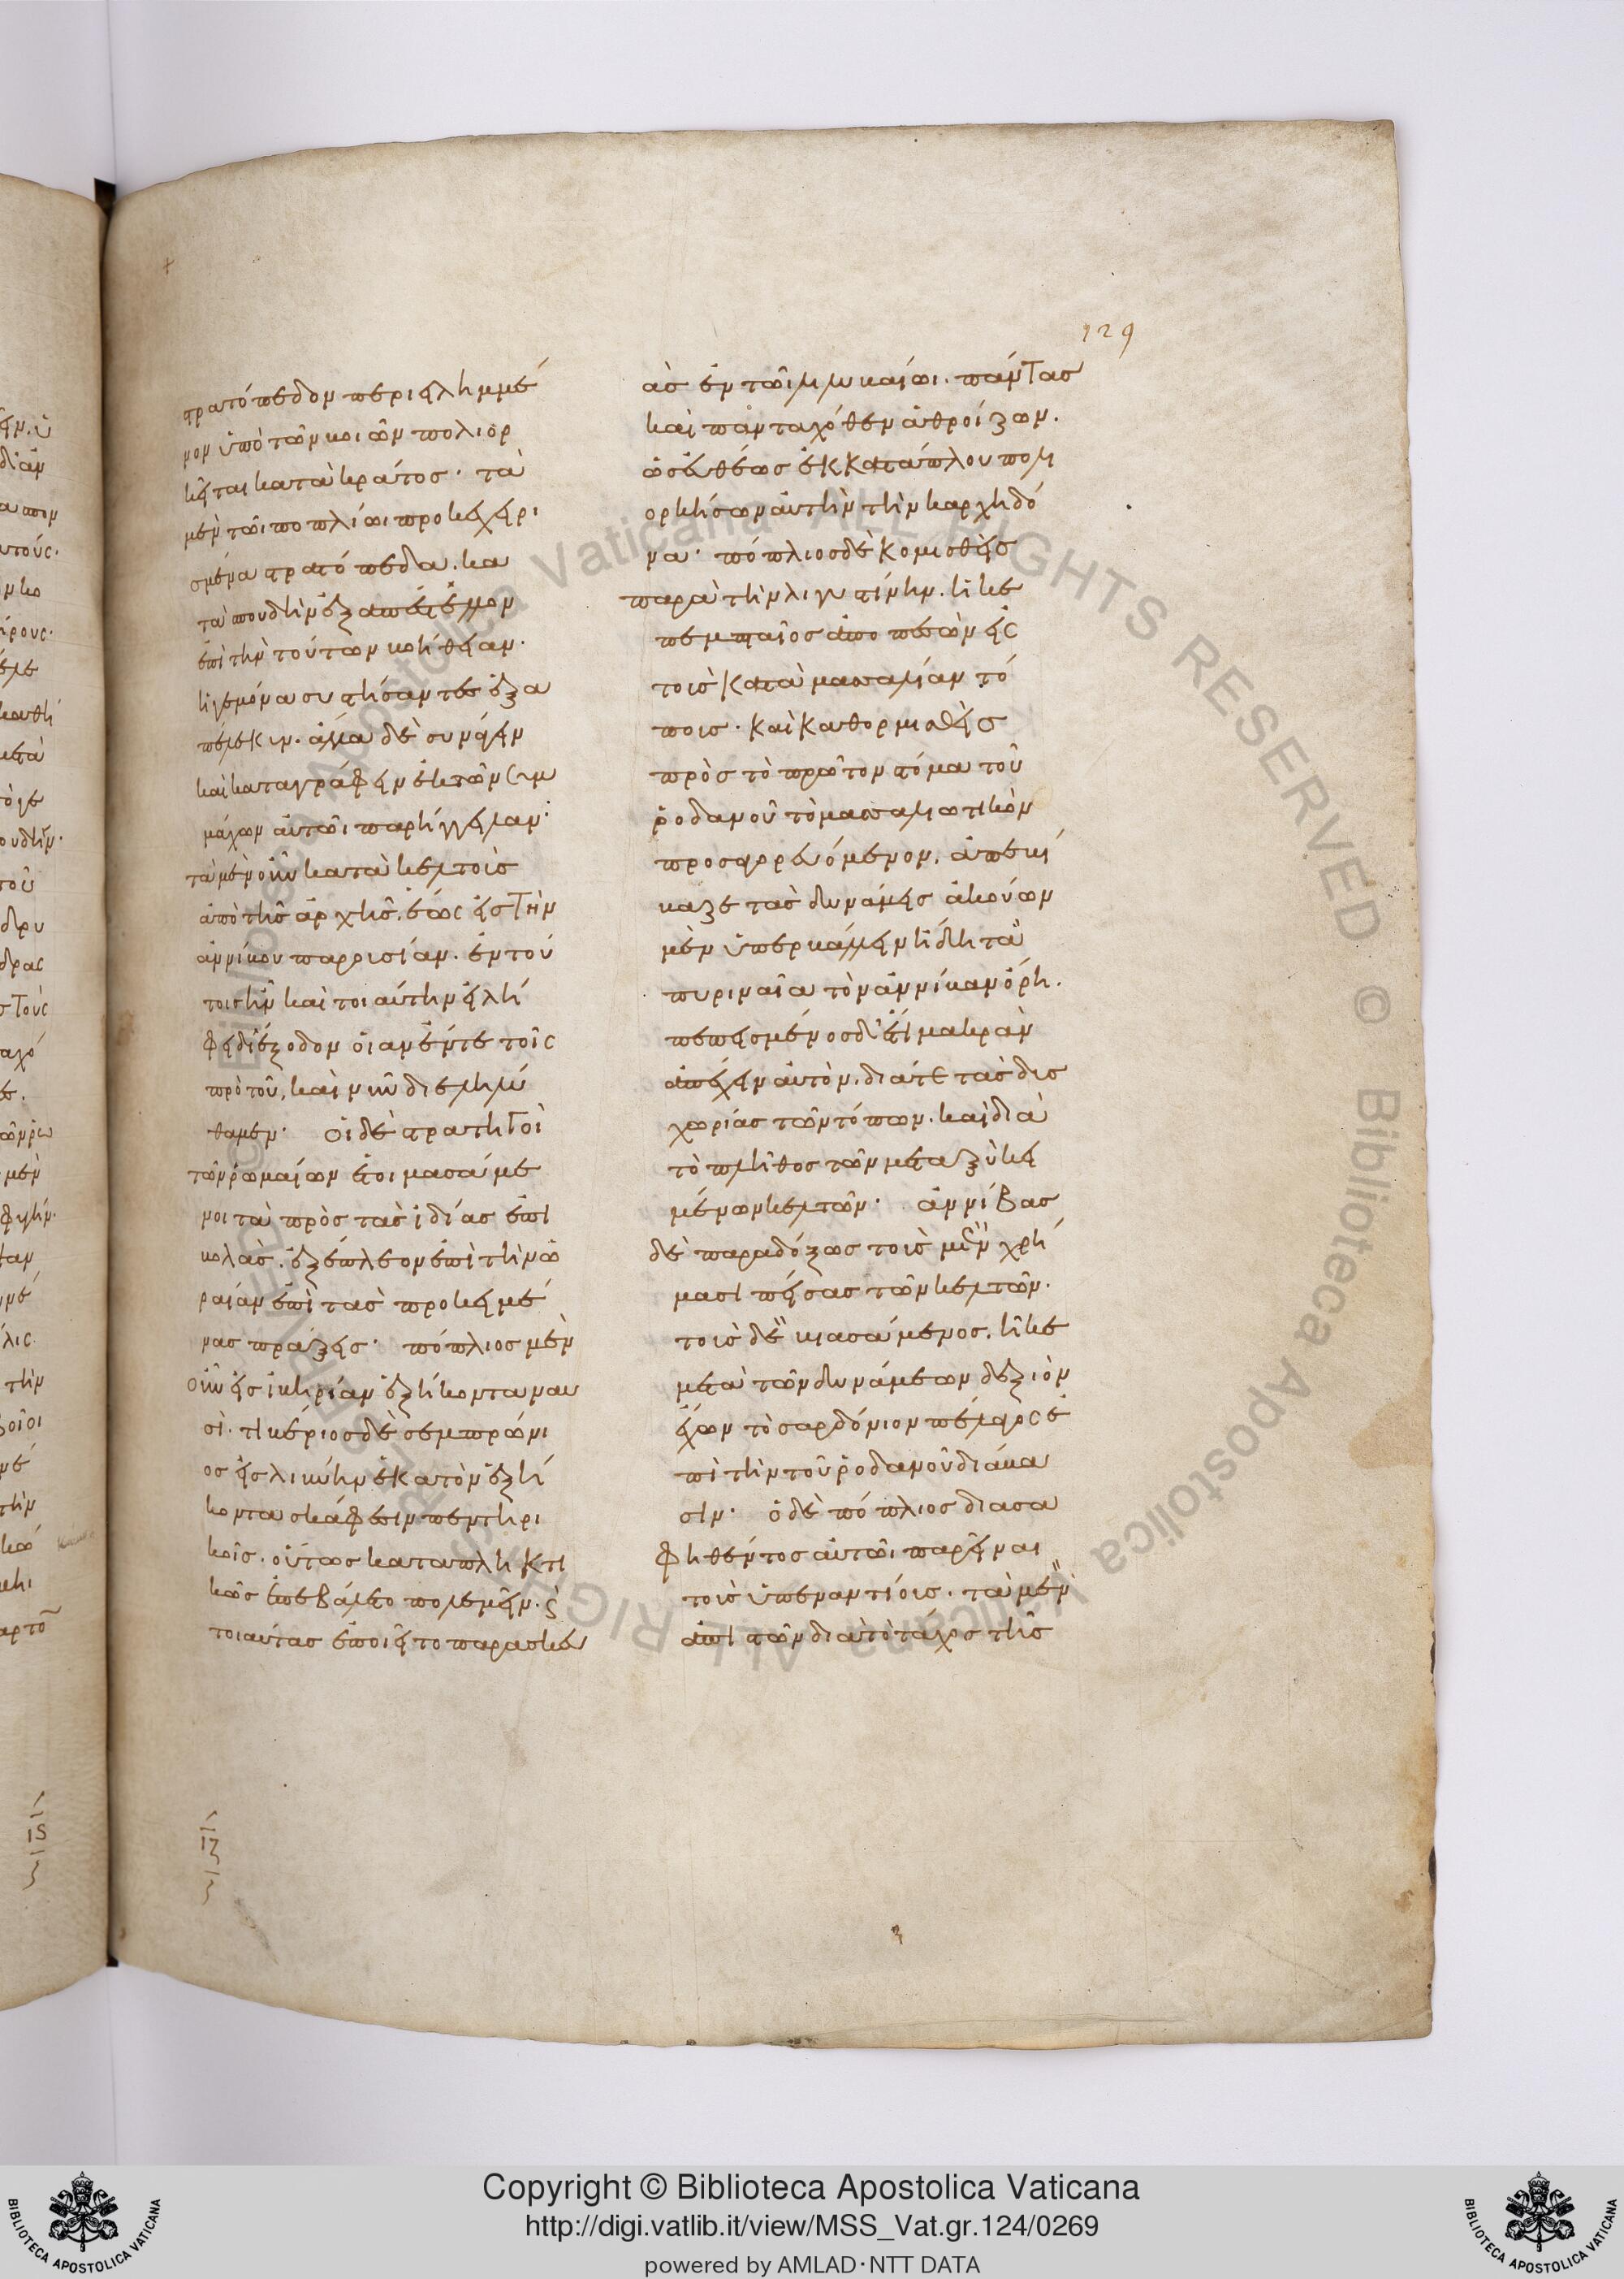 στρατόπεδον περιειλημμέ
νον ὑπὸ τῶν βοιῶν πολιορ
κεῖται κατὰ κράτος· τὰ
μὲν τῶι ποπλίωι προκεχειρι
σμένα στρατόπεδα. κα
τὰ σπουδὴν ἐξαπέστελλον
ἐπὶ τὴν τούτων βοήθειαν·
ἡγεμόνα συστήσαντες ἑξα
πέλεκυν. ἄλλα δὲ συνάγειν
καὶ καταγράφειν ἐκ τῶν συμ
μάχων αὐτῶι παρήγγειλαν·
τὰ μὲν οὖν κατὰ κελτοὺς
ἀπὸ τῆς ἀρχῆς. ἕως εἰς τὴν
ἀννίβου παρουσίαν. ἐν τού
τοις ἦν καὶ τοιαύτην εἰλή
φει διέξοδον οἵαν ἔν τε τοῖς
πρὸ τοῦ, καὶ νῦν διεληλύ
θαμεν· οἱ δὲ στρατηγοὶ
τῶν ῥωμαίων ἑτοιμασάμε
νοι τὰ πρὸς τὰς ἰδίας ἐπι
βολὰς. ἐξέπλεον ἐπὶ τὴν ὡ
ραίαν ἐπὶ τὰς προκειμέ
νας πράξεις· πόπλιος μὲν
οὖν εἰς ἰβηρίαν ἑξήκοντα ναυ
σὶ. τιβέριος δὲ σεμπρώνι
ος εἰς λιβύην ἑκατὸν ἑξή
κοντα σκάφεσιν πεντηρι
κοῖς. οὕτως καταπληκτι
κῶς ἐπεβάλετο πολεμεῖν. ϗ
τοιαύτας ἐποιεῖτο παρασκευ
129
ὰς ἐν τῶι λιλυβαίωι. πάντας
καὶ πανταχόθεν ἀθροίζων.
ὡς εὐθέως ἐκ κατάπλου πολι
ορκήσων αὐτὴν τὴν καρχηδό
να· πόπλιος δὲ κομισθεὶς
παρὰ τὴν λιγυστίνην. ἧκε
πεμπταῖος ἀπὸ πεισῶν εἰς
τοὺς κατὰ μασσαλίαν τό
πους. καὶ καθορμισθεὶς
πρὸς τὸ πρῶτον στόμα τοῦ
ῥοδανοῦ τὸ μασσαλιωτικὸν
προσαγορευόμενον. ἀπεβί
βαζε τὰς δυνάμεις ἀκούων
μὲν ὑπερβάλλειν ἤδη τὰ
πυριναῖα τὸν ἀννίβαν ὄρη.
πεπεισμένος δ' ἔτι μακρὰν
ἀπέχειν αὐτόν. διά τε τὰς δυσ
χωρίας τῶν τόπων. καὶ διὰ
τὸ πλῆθος τῶν μεταξὺ κει
μένων κελτῶν· ἀννίβας
δὲ παραδόξως τοὺς μὲν χρή
μασι πείσας τῶν κελτῶν.
τοὺς δὲ βιασάμενος. ἧκε
μετὰ τῶν δυνάμεων δεξιὸν
ἔχων τὸ σαρδόνιον πέλαγος ἐ
πὶ τὴν τοῦ ῥοδανοῦ διάβα
σιν· ὁ δὲ πόπλιος διασα
φηθέντος αὐτῶι παρεῖναι
τοὺς ὑπεναντίους. τὰ μὲν
ἀπιστῶν διὰ τὸ τάχος τῆς
ιζ
© Biblioteca Apostolica Vaticana ALL RIGHTS RESERVED © Biblioteca Apostolica Vaticana ALL RIGHTS RESERVED
Copyright © Biblioteca Apostolica Vaticana
http://digi.vatlib.it/view/MSS_Vat.gr.124/0269
powered by AMLAD·NTT DATA
BIBLIOTECA APOSTOLICA VATICANA
BIBLIOTECA APOSTOLICA VATICANA